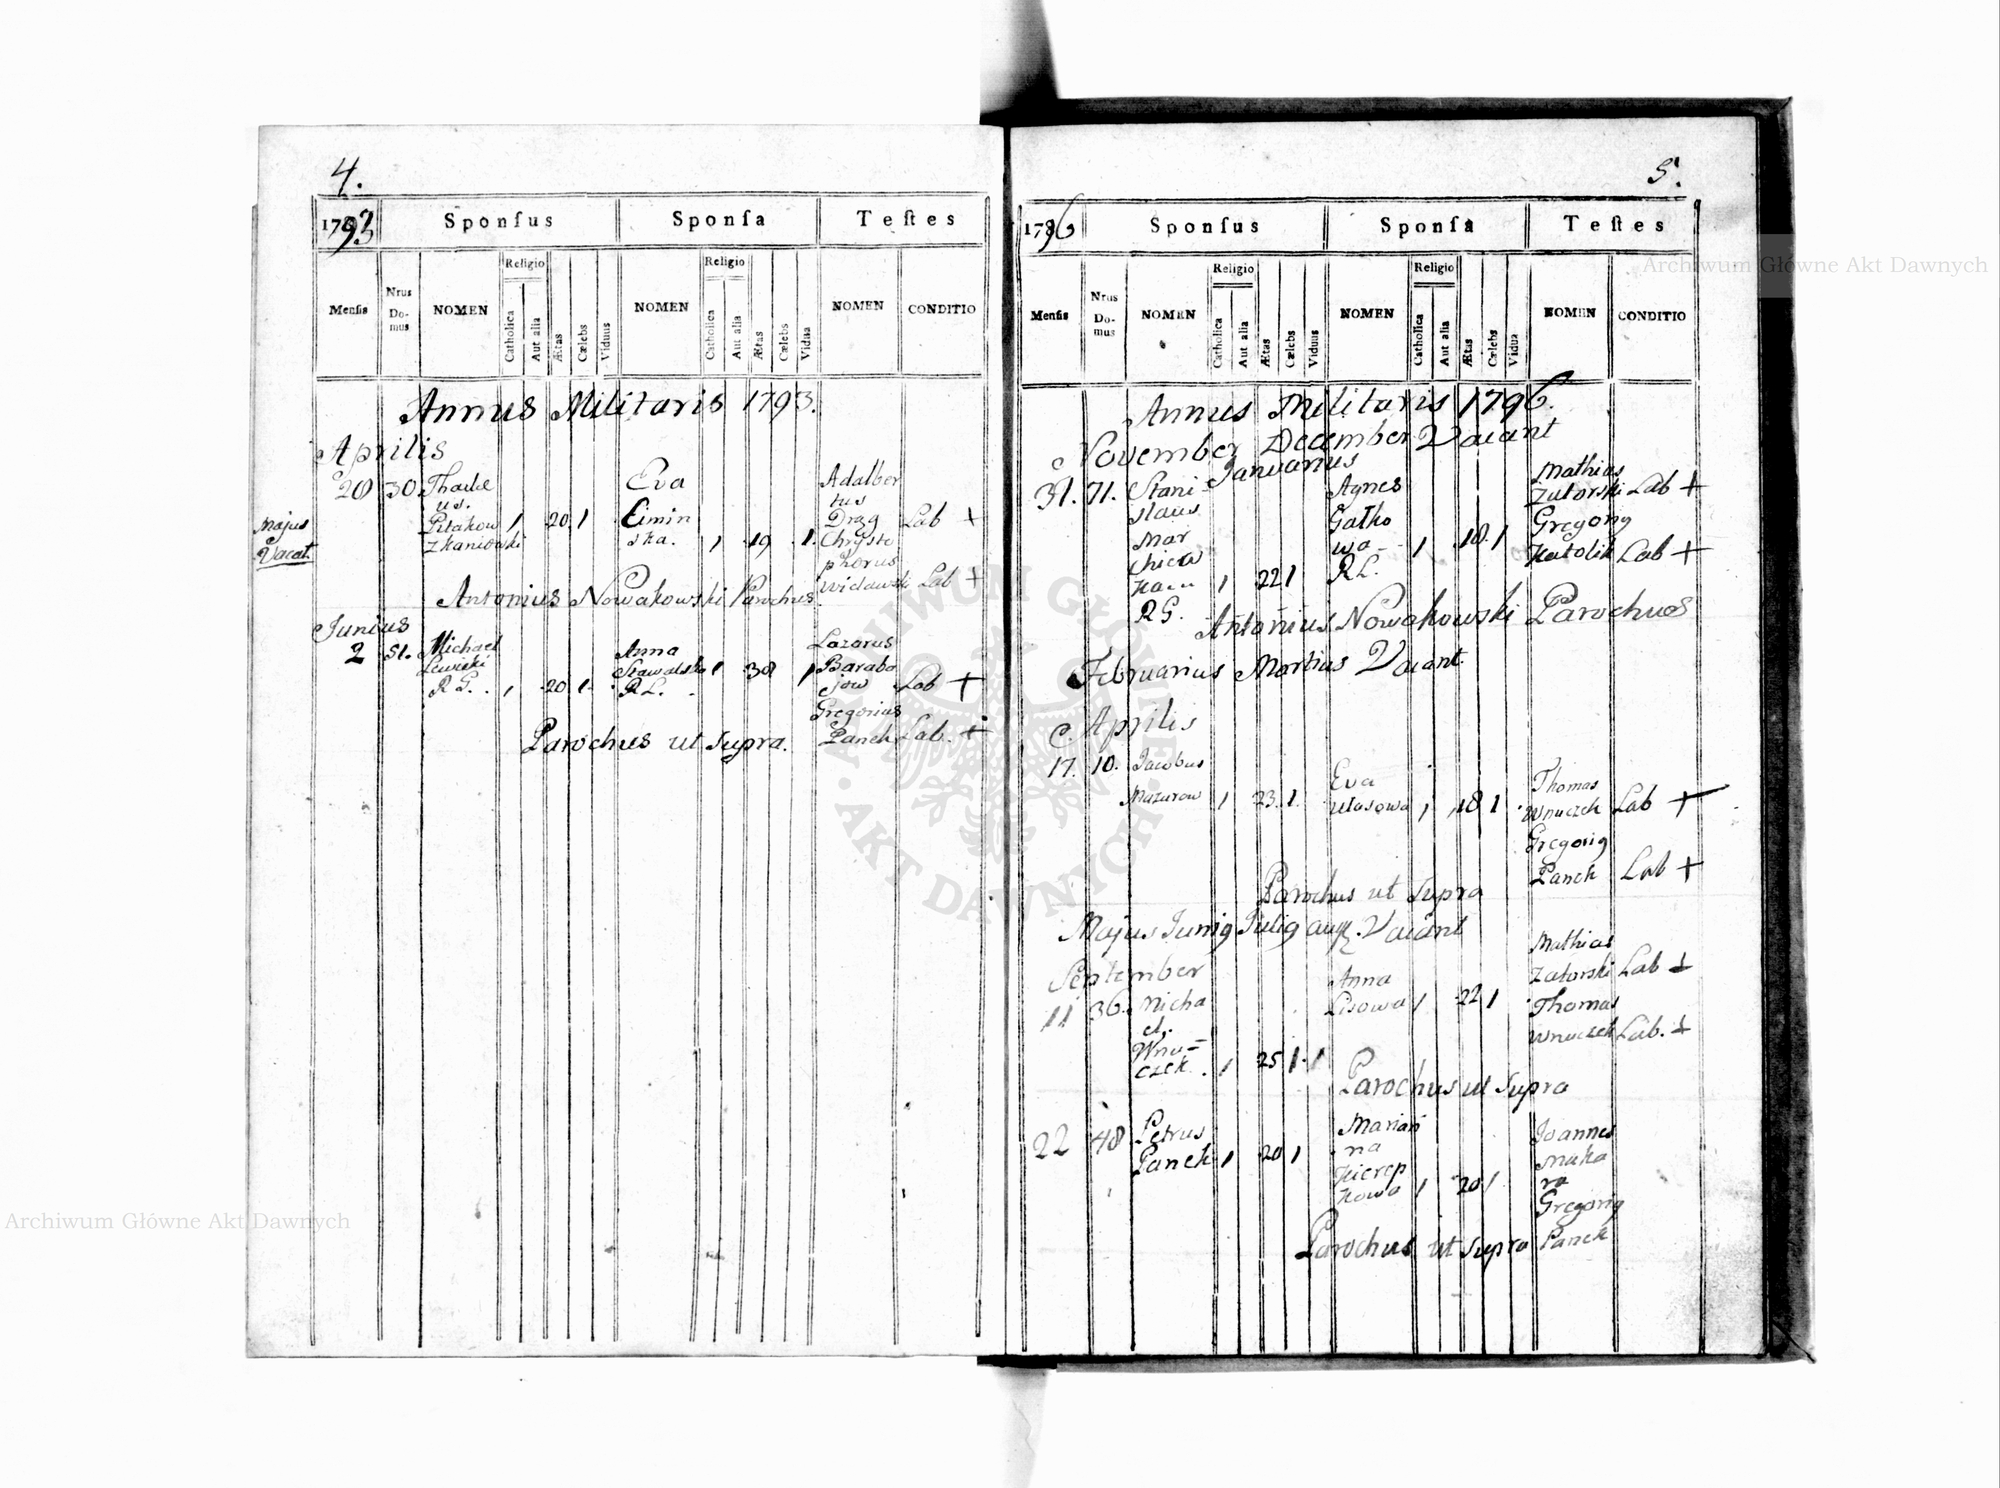 4.
1793
Sponſus
Sponſa
Teſtes
Menſis
Nrus Do-mus
NOMEN
Religio
Catholica
Aut alia
Ætas
Cælebs
Viduus
NOMEN
Religio
Catholica
Aut alia
Ætas
Cælebs
Vidua
NOMEN
CONDITIO
Annus Militaris 1793.
Aprilis
20 30. Thadae Eva Adalber
us. tus
Cimin Drag Lab +
1 20 1 ska. 1 19 1. Chrysto
Majus
Vacat
phorus
Lab +
Antonius Nowakowski Parochus
Junius
2 51. Michael Anna Lazarus
Lewicki 1 30 1 Barabo
R G. 1 20 1 R L. jow Lab +
Gregorius
Panek Lab. +
Parochus ut Supra.
5.
1796
Sponſus
Sponſa
Teſtes
Menſis
Nrus Do-mus
NOMEN
Religio
Catholica
Aut alia
Ætas
Cælebs
Viduus
NOMEN
Religio
Catholica
Aut alia
Ætas
Cælebs
Vidua
NOMEN
CONDITIO
Annus Militaris 1796.
November December Vacant
Januarius
31. 71. Stani- Agnes Mathias
slaus Gatko Zatorski Lab +
Mar wa - 1 18 1 Gregorig
chiew R L. Katolik Lab +
1 22 1
R G.
Antonius Nowakowski Parochus
Februarius Martius Vacant.
Aprilis
17. 10. Jacobus Eva Thomas
Mazurow 1 23. 1. 1 18 1 Wnuczek Lab +
Gregorig
Panek Lab +
Parochus ut Supra
Majus Junig Julig aug. Vacant
September Mathias
11 36. Micha Anna Zatorski Lab +
el. Lisowa 1 22 1 Thomas
Wnu= Wnuczek Lab. +
czek. 1 25 1 1
Parochus ut Supra
22 48 Petrus Marian Joannes
Panek 1 20 1 na Maka
Kierep ra
kowa 1 20 1 Gregorig
Panek
Parochus ut Supra
Archiwum Główne Akt Dawnych
Archiwum Główne Akt Dawnych
ARCHIWUM GŁÓWNE · AKT DAWNYCH ·